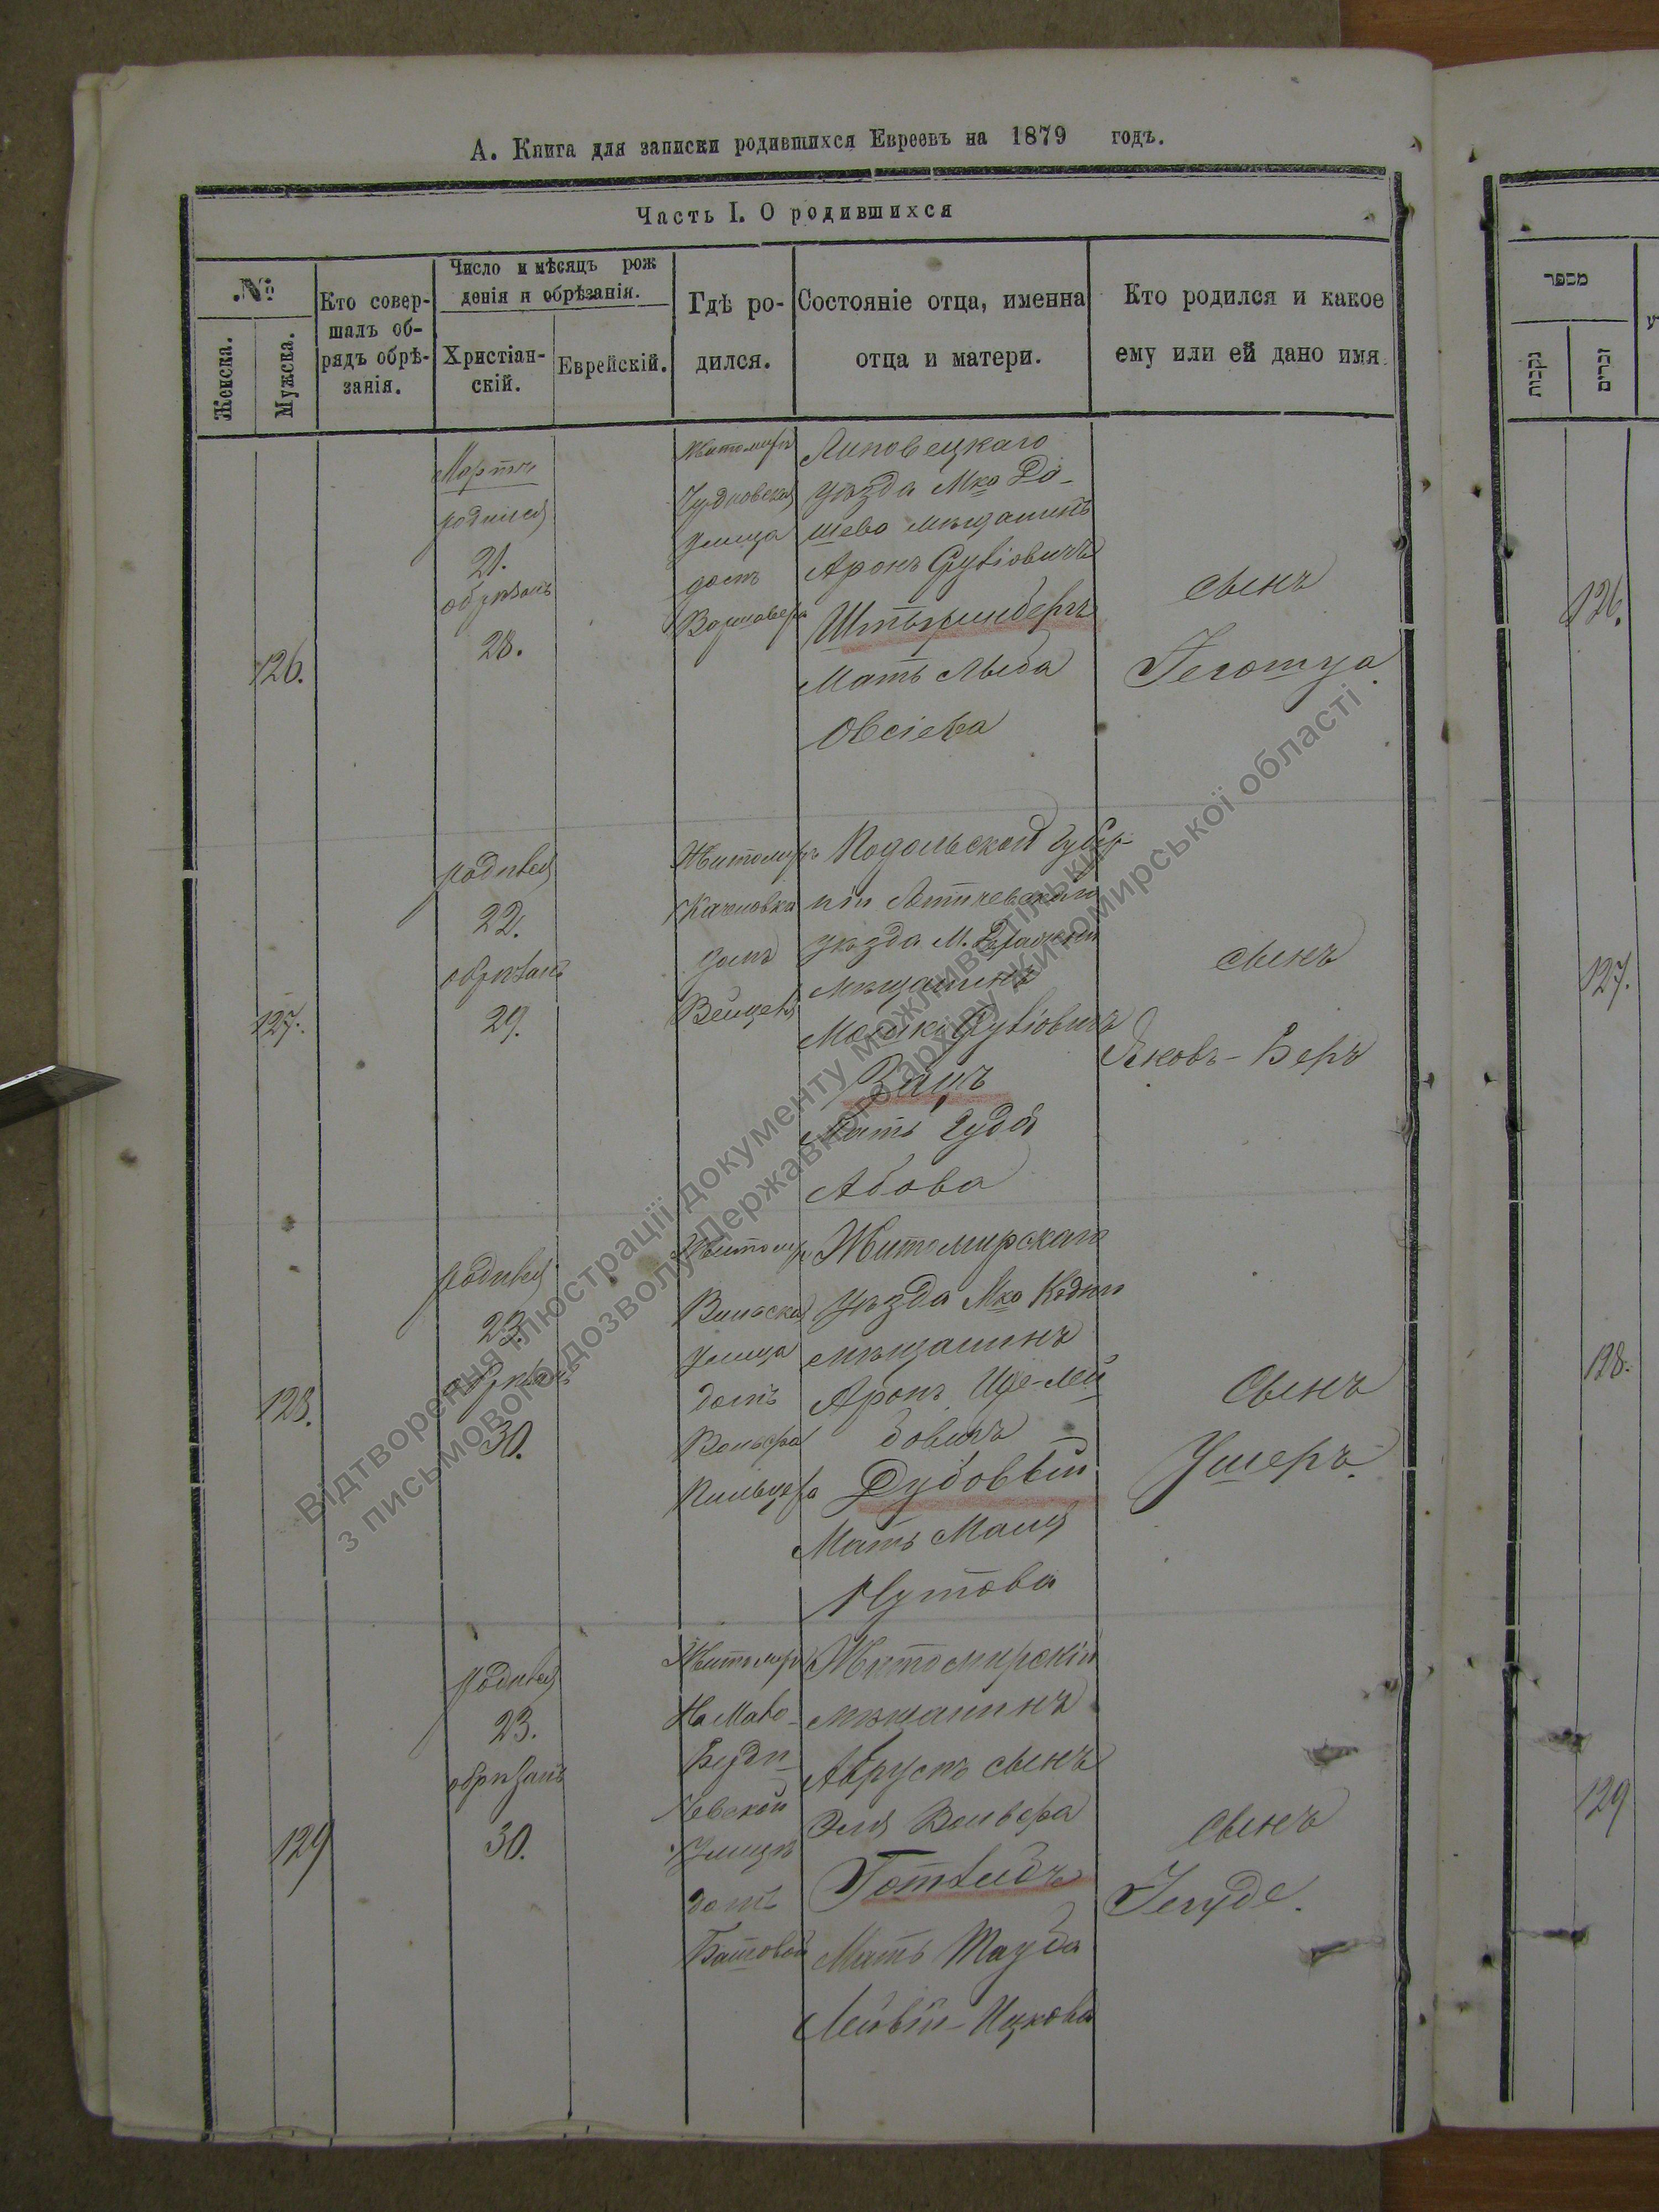 А. Книга для записки родившихся Евреевъ на 1879 годъ.
Часть I. О родившихся
№
Женска.
Мужска.
Кто совер-
шалъ об-
рядъ обрѣ-
занія.
Число и мѣсяцъ рож
денія и обрѣзанія.
Христіан-
скій.
Еврейскій.
Гдѣ ро-
дился.
Состояніе отца, именна
отца и матери.
Кто родился и какое
ему или ей дано имя.
126.
Мартъ
родился
21.
обрѣзанъ
28.
Житомиръ
Чудновская
улица
домъ
Липовецкаго
уѣзда Мко Да-
шево мѣщанинъ
Аронъ
Мать Лыба
Овсіева
сынъ
127.
родився
22.
обрѣзанъ
29.
Житомиръ
домъ
Подольской губер-
ніи Летичевскаго
уѣзда М.
мѣщанинъ
Зацъ
Мать
Абова
сынъ
Яковъ-Беръ
128.
родився
23.
обрѣзанъ
30.
Житомиръ
Вильская
улица
домъ
Вольфа
Житомирскаго
уѣзда Мко Кодни
мѣщанинъ
Аронъ Ице-Лей
бовичъ
Дубовый
Мать Маня
Нутова
Сынъ
Ушеръ.
129
родився
23.
обрѣзанъ
30.
Житомиръ
На Мало-
Берди-
чевской
улицѣ
домъ
Житомирскій
мѣщанинъ
сынъ
Эля Вольфа
Мать Тауба
Лейвій-Ицкова
Сынъ
Іегуде.
מספר
נקבות
זכרים
126.
127.
128.
129
Відтворення ілюстрації документу можливе тільки
з письмового дозволу Державного архіву Житомирської області